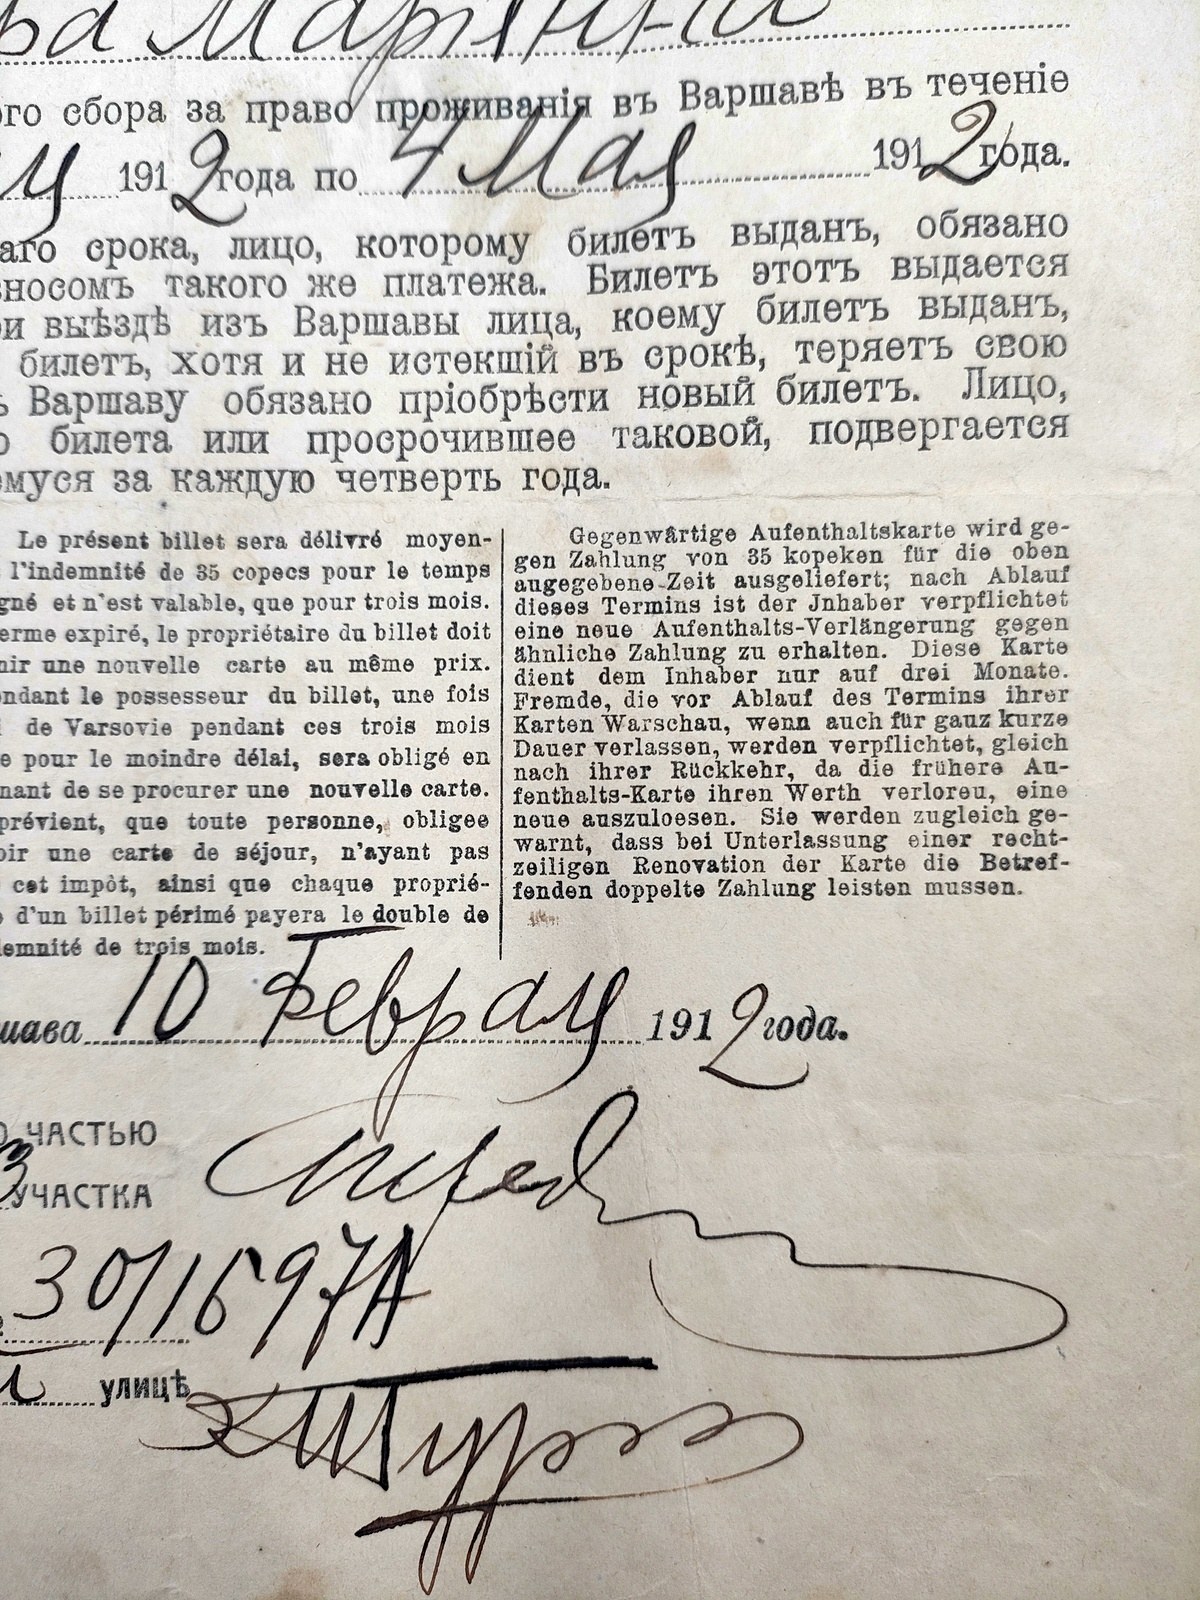 го сбора за право проживанія въ Варшавѣ въ теченіе
1912 года по 4 Мая 1912 года.
аго срока, лицо, которому билетъ выданъ, обязано
зносомъ такого же платежа. Билетъ этотъ выдается
ри выѣздѣ изъ Варшавы лица, коему билетъ выданъ,
билетъ, хотя и не истекшій въ срокѣ, теряетъ свою
ъ Варшаву обязано пріобрѣсти новый билетъ. Лицо,
о билета или просрочившее таковой, подвергается
емуся за каждую четверть года.
Le présent billet sera délivré moyen-
l'indemnité de 35 copecs pour le temps
gné et n'est valable, que pour trois mois.
erme expiré, le propriétaire du billet doit
nir une nouvelle carte au même prix.
endant le possesseur du billet, une fois
de Varsovie pendant ces trois mois
e pour le moindre délai, sera obligé en
nant de se procurer une nouvelle carte.
prévient, que toute personne, obligee
oir une carte de séjour, n'ayant pas
cet impôt, ainsi que chaque proprié-
d'un billet périmé payera le double de
demnité de trois mois.
Gegenwärtige Aufenthaltskarte wird ge-
gen Zahlung von 35 kopeken für die oben
angegebene Zeit ausgeliefert; nach Ablauf
dieses Termins ist der Jnhaber verpflichtet
eine neue Aufenthalts-Verlängerung gegen
ähnliche Zahlung zu erhalten. Diese Karte
dient dem Inhaber nur auf drei Monate.
Fremde, die vor Ablauf des Termins ihrer
Karten Warschau, wenn auch für gauz kurze
Dauer verlassen, werden verpflichtet, gleich
nach ihrer Rückkehr, da die frühere Au-
fenthalts-Karte ihren Werth verloreu, eine
neue auszuloesen. Sie werden zugleich ge-
warnt, dass bei Unterlassung einer recht-
zeiligen Renovation der Karte die Betref-
fenden doppelte Zahlung leisten mussen.
шава 10 Февраля 1912 года.
ЧАСТЬЮ
3 УЧАСТКА
30/1697А
улицѣ